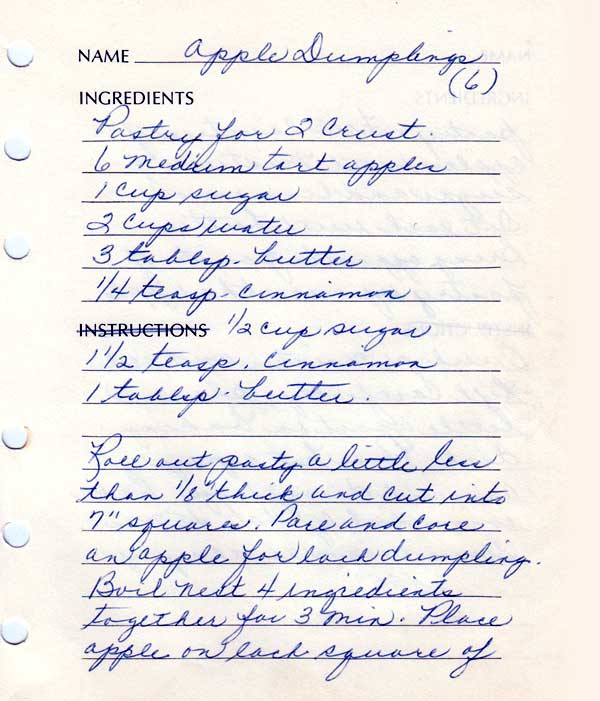 NAME Apple Dumplings
(6)
INGREDIENTS
Pastry for 2 Crust.
6 medium tart apples
1 cup sugar
2 cups water
3 tablsp. butter
1/4 teasp. cinnamon
INSTRUCTIONS 1/2 cup sugar
1 1/2 teasp. cinnamon
1 tablsp. butter.
Roll out pasty a little less
than 1/8" thick and cut into
7" squares. Pare and core
an apple for each dumpling.
Boil next 4 ingredients
together for 3 min. Place
apple on each square of